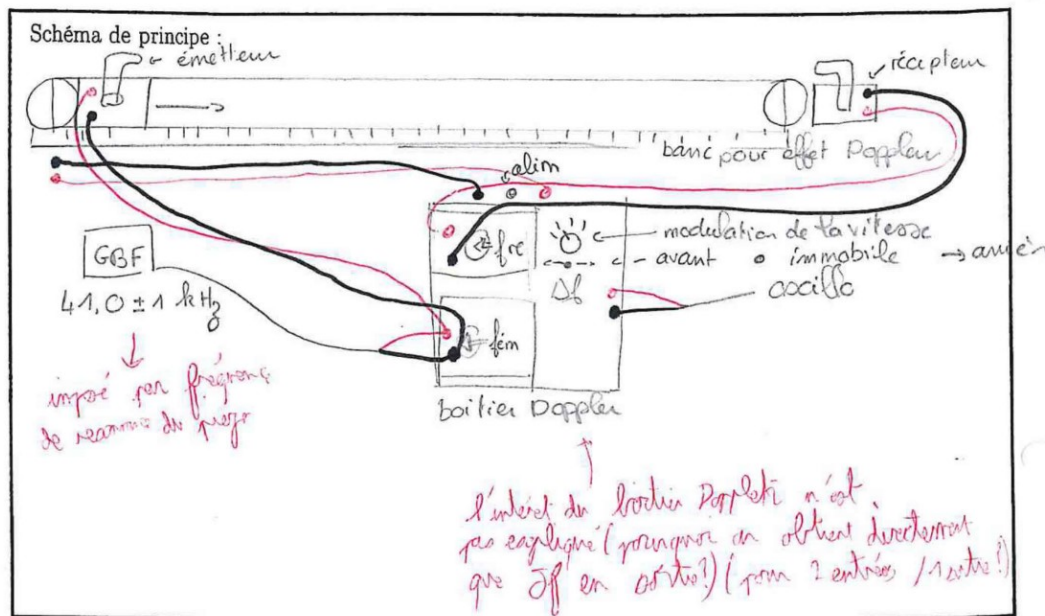 Schéma de principe :
émetteur
récepteur
banc pour effet Doppler
alim
GBF
41,0 ± 1 kHz
fre
modulation de la vitesse
avant immobile → arrièr
Δf
oscillo
fém
boitier Doppler
imposé par fréquence
de resonance du piezo
l'intéret du boitier Doppler n'est
pas expliqué (pourquoi on obtient directement
que δf en sortie ?) (pour 2 entrées / 1 sortie !)